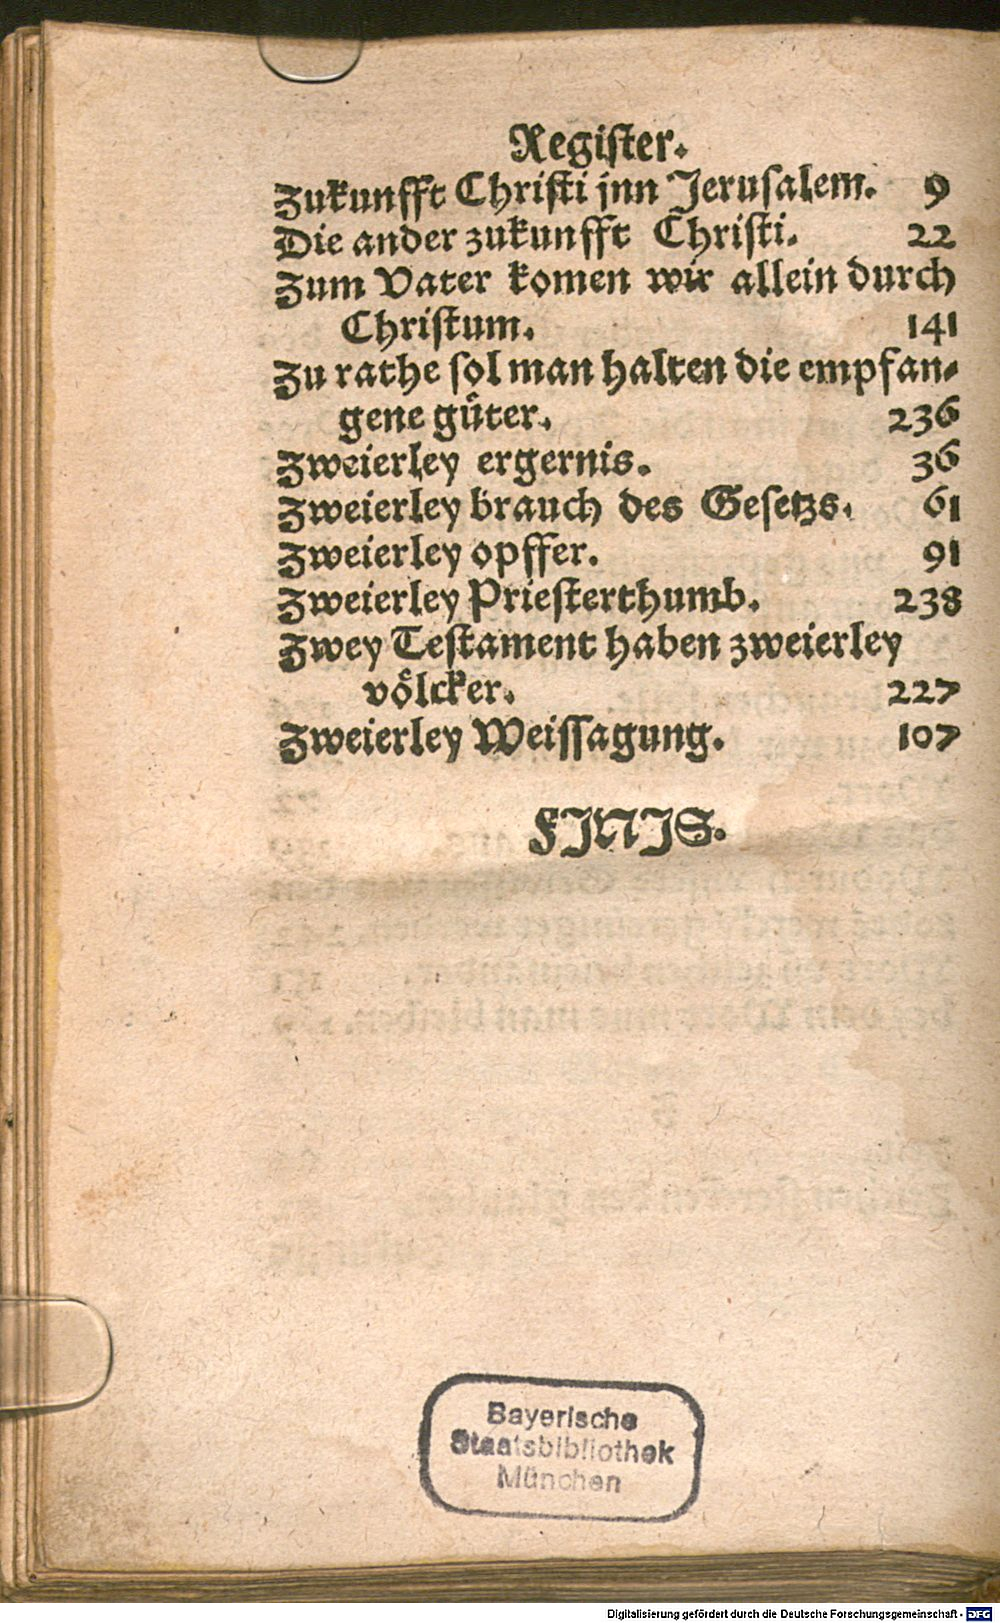 Register.
Zukunfft Christi jnn Jerusalem. 9
Die ander zukunfft Christi. 22
Zum Vater komen wir allein durch
Christum. 141
Zu rathe sol man halten die empfan-
gene gůter. 236
Zweierley ergernis. 36
Zweierley brauch des Gesetzs. 61
Zweierley opffer. 91
Zweierley Priesterthumb. 238
Zwey Testament haben zweierley
vőlcker. 227
Zweierley Weissagung. 107
FINIS.
Bayerische
Staatsbibliothek
München
Digitalisierung gefördert durch die Deutsche Forschungsgemeinschaft - DFG